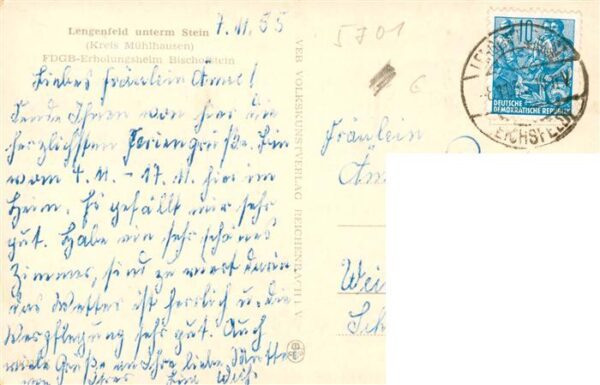 7. 11. 55
Lengenfeld unterm Stein
(Kreis Mühlhausen)
FDGB-Erholungsheim Bischofstein
Liebes Fräulein Änne!
Sende Ihnen von hier die
herzlichsten Feriengrüße. Bin
vom 4. 11. - 17. 11. hier im
Heim. Es gefällt mir sehr
gut. Habe ein sehr schönes
Zimmer, sind zu viert darin
das Wetter ist herrlich u. die
Verpflegung sehr gut. Auch
viele Grüße an Ihre liebe Mutter
von Ihrer
VEB VOLKSKUNSTVERLAG REICHENBACH I. V
5701
10
DEUTSCHE
DEMOKRATISCHE REPUBLIK
EICHSFELD
Fräulein
Än
Wei
Sch